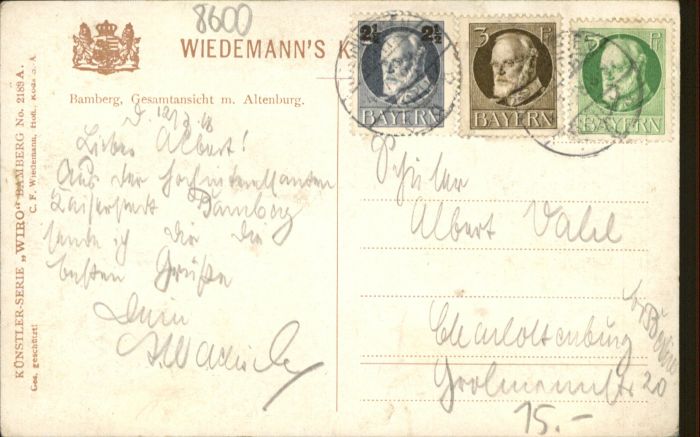 8600
WIEDEMANN'S K
Bamberg, Gesamtansicht m. Altenburg.
KÜNSTLER-SERIE „WIRO“ BAMBERG No. 2189 A.
C. F. Wiedemann, Hofl.
Ges. geschützt!
2½ 2½
BAYERN
3 Pf
BAYERN
5 Pf
BAYERN
Lieber Albert!
Aus der hochinteressanten
Kaiserstadt Bamberg
sende ich Dir die
besten Grüße
Dein
Schüler
Albert Vahl
Charlottenburg
b/Berlin
Grolmannstr 20
15.-